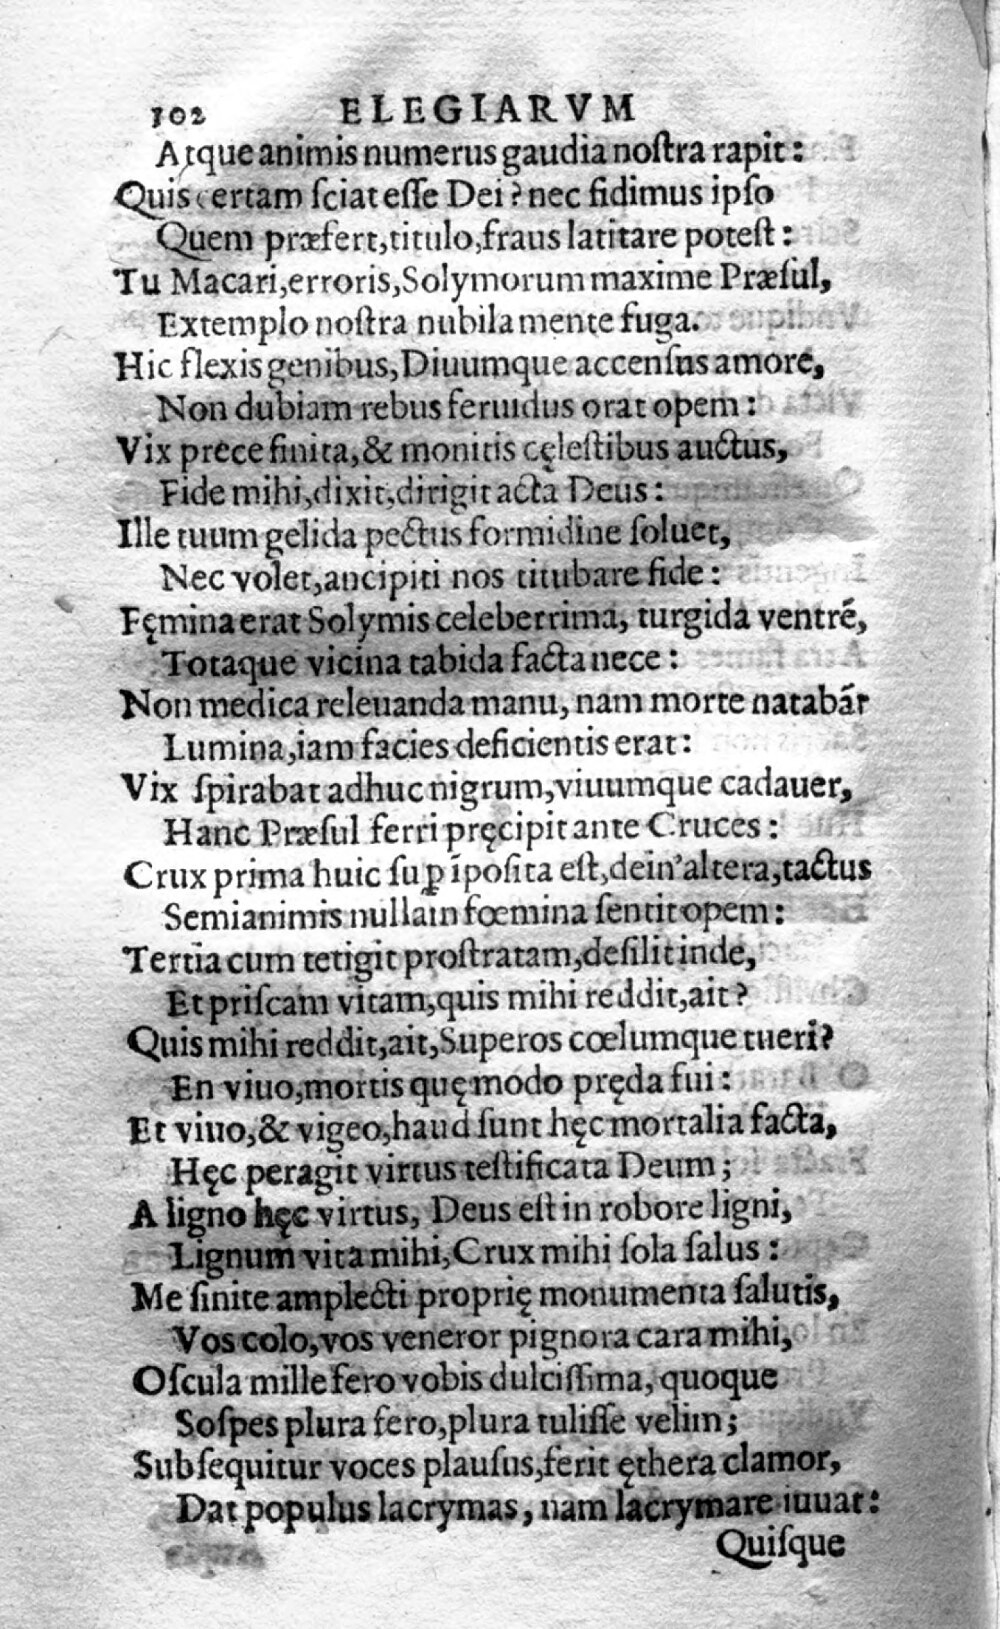 102 ELEGIARVM
Atque animis numerus gaudia noſtra rapit:
Quis certam ſciat eſſe Dei? nec fidimus ipſo
Quem præfert, titulo, fraus latitare poteſt:
Tu Macari, erroris, Solymorum maxime Præſul,
Extemplo noſtra nubila mente fuga.
Hic flexis genibus, Diuumque accenſus amore,
Non dubiam rebus feruidus orat opem:
Vix prece finita, & monitis cęleſtibus auctus,
Fide mihi, dixit, dirigit acta Deus:
Ille tuum gelida pectus formidine ſoluet,
Nec volet, ancipiti nos titubare fide:
Fęmina erat Solymis celeberrima, turgida ventre,
Totaque vicina tabida facta nece:
Non medica releuanda manu, nam morte natabāt
Lumina, iam facies deficientis erat:
Vix ſpirabat adhuc nigrum, viuumque cadauer,
Hanc Præſul ferri pręcipit ante Cruces:
Crux prima huic ſuꝑ īpoſita eſt, dein' altera, tactus
Semianimis nullam fœmina ſentit opem:
Tertia cum tetigit proſtratam, deſilit inde,
Et priſcam vitam, quis mihi reddit, ait?
Quis mihi reddit, ait, Superos cœlumque tueri?
En viuo, mortis quę modo pręda fui:
Et viuo, & vigeo, haud ſunt hęc mortalia facta,
Hęc peragit virtus teſtificata Deum;
A ligno hęc virtus, Deus eſt in robore ligni,
Lignum vita mihi, Crux mihi ſola ſalus:
Me ſinite amplecti proprię monumenta ſalutis,
Vos colo, vos veneror pignora cara mihi,
Oſcula mille fero vobis dulciſſima, quoque
Soſpes plura fero, plura tuliſſe velim;
Subſequitur voces plauſus, ferit ęthera clamor,
Dat populus lacrymas, nam lacrymare iuuat:
Quiſque